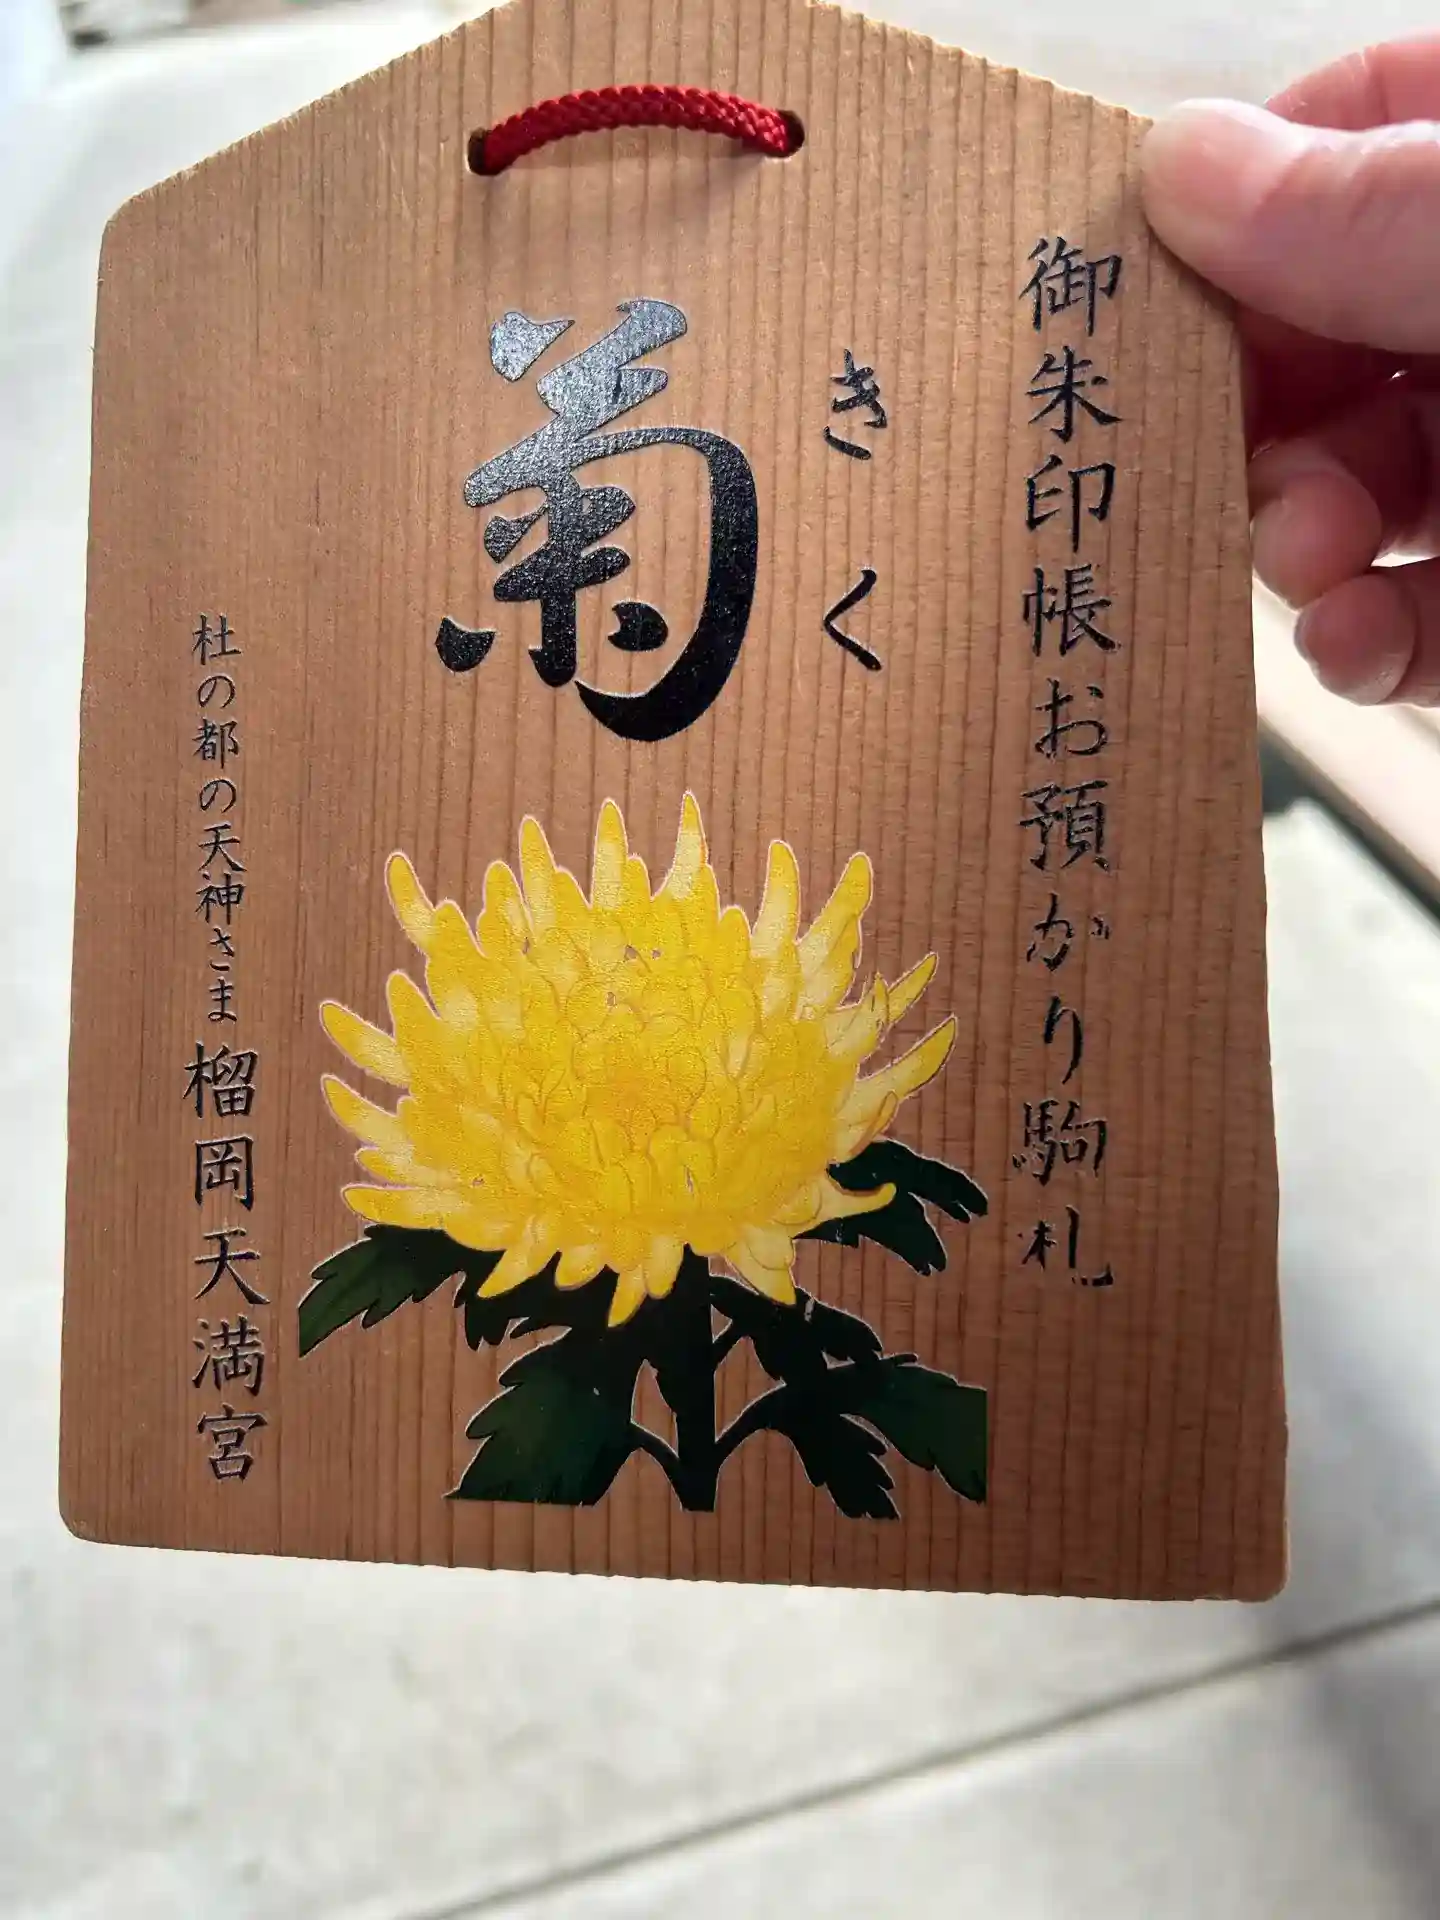 御朱印帳お預かり駒札
きく
菊
杜の都の天神さま 榴岡天満宮